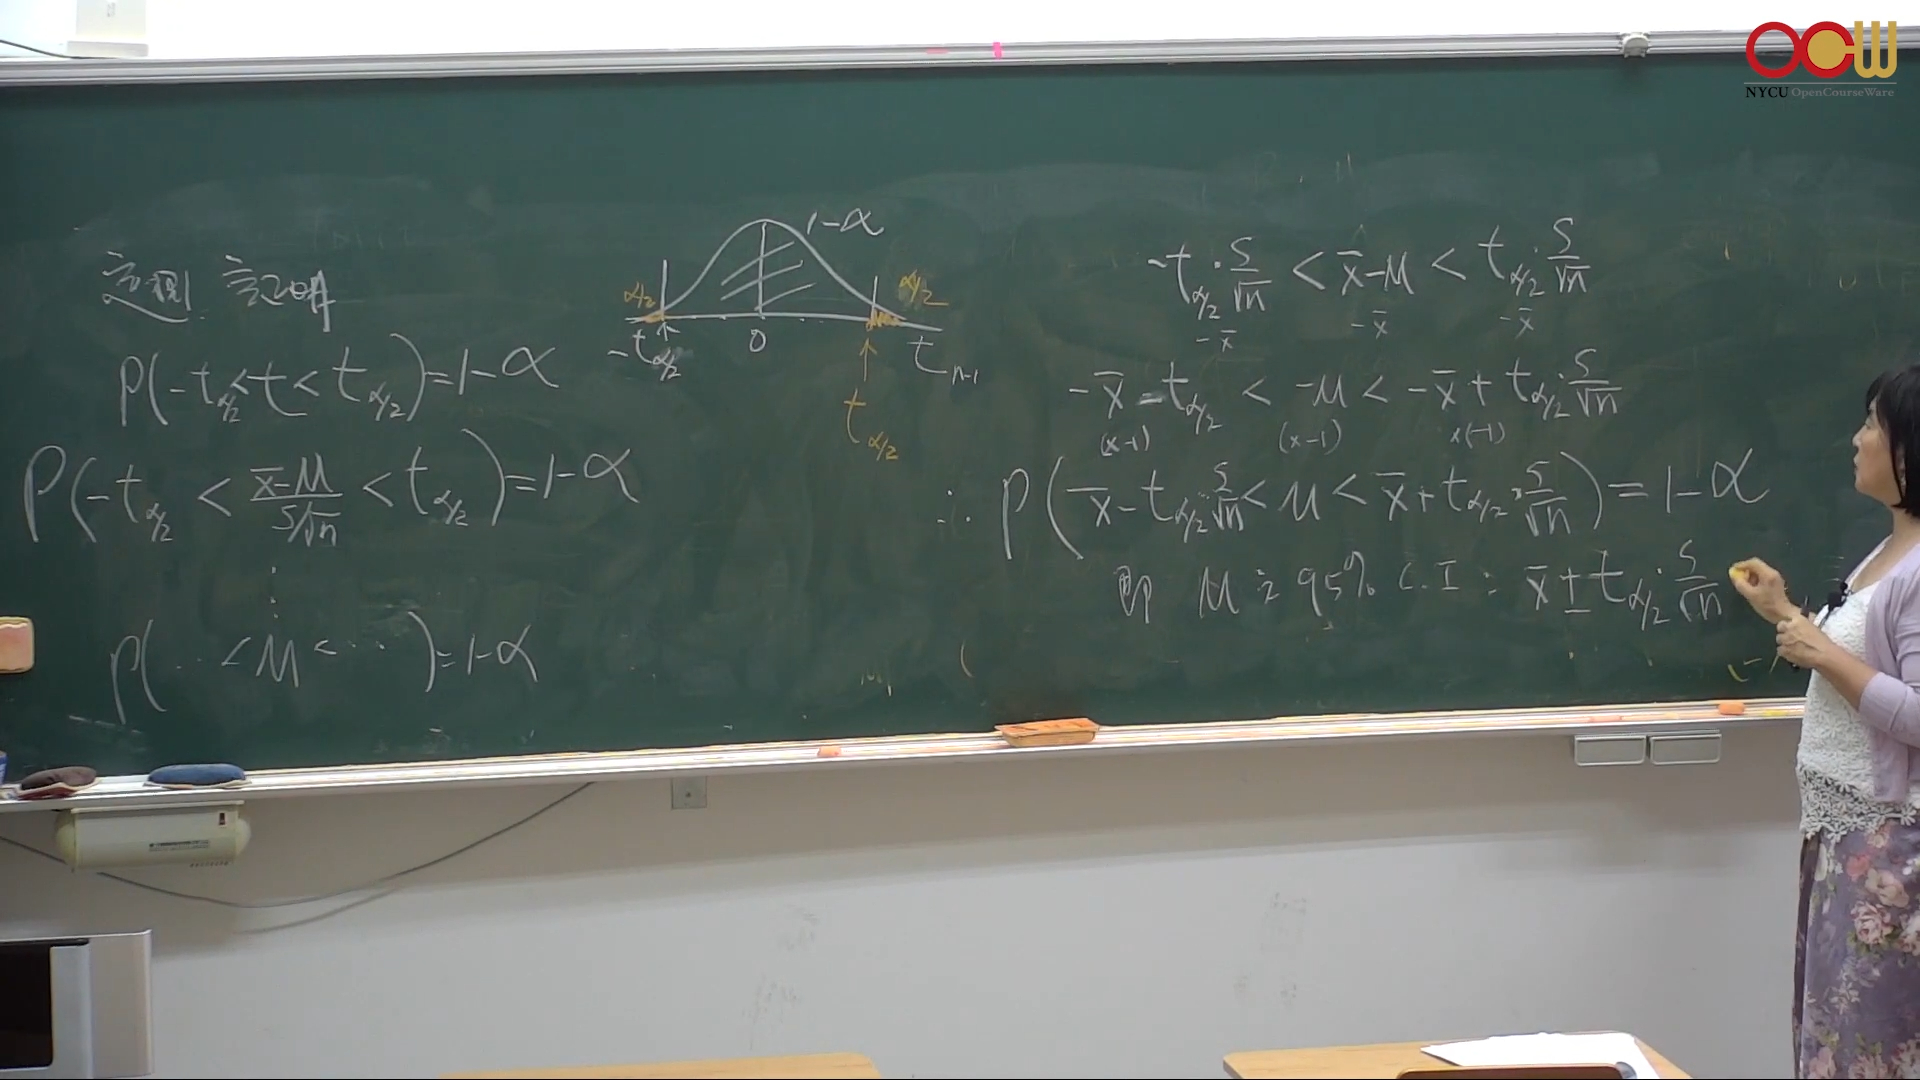 OCW
NYCU OpenCourseWare
定理 證明
P(-t_{α/2} < t < t_{α/2}) = 1-α
P(-t_{α/2} < \frac{x̄-μ}{s/√n} < t_{α/2}) = 1-α
⋮
P( ‥ < μ < ⋯ ) = 1-α
1-α
α/2 α/2
-t_{α/2} 0 t_{n-1}
t_{α/2}
-t_{α/2}·\frac{s}{√n} < x̄-μ < t_{α/2}·\frac{s}{√n}
-x̄ -x̄ -x̄
-x̄ - t_{α/2} < -μ < -x̄ + t_{α/2}·\frac{s}{√n}
(x-1) (x-1) x(-1)
∴ P(x̄ - t_{α/2}·\frac{s}{√n} < μ < x̄ + t_{α/2}·\frac{s}{√n}) = 1-α
即 μ 之 95% C.I : x̄ ± t_{α/2}·\frac{s}{√n}